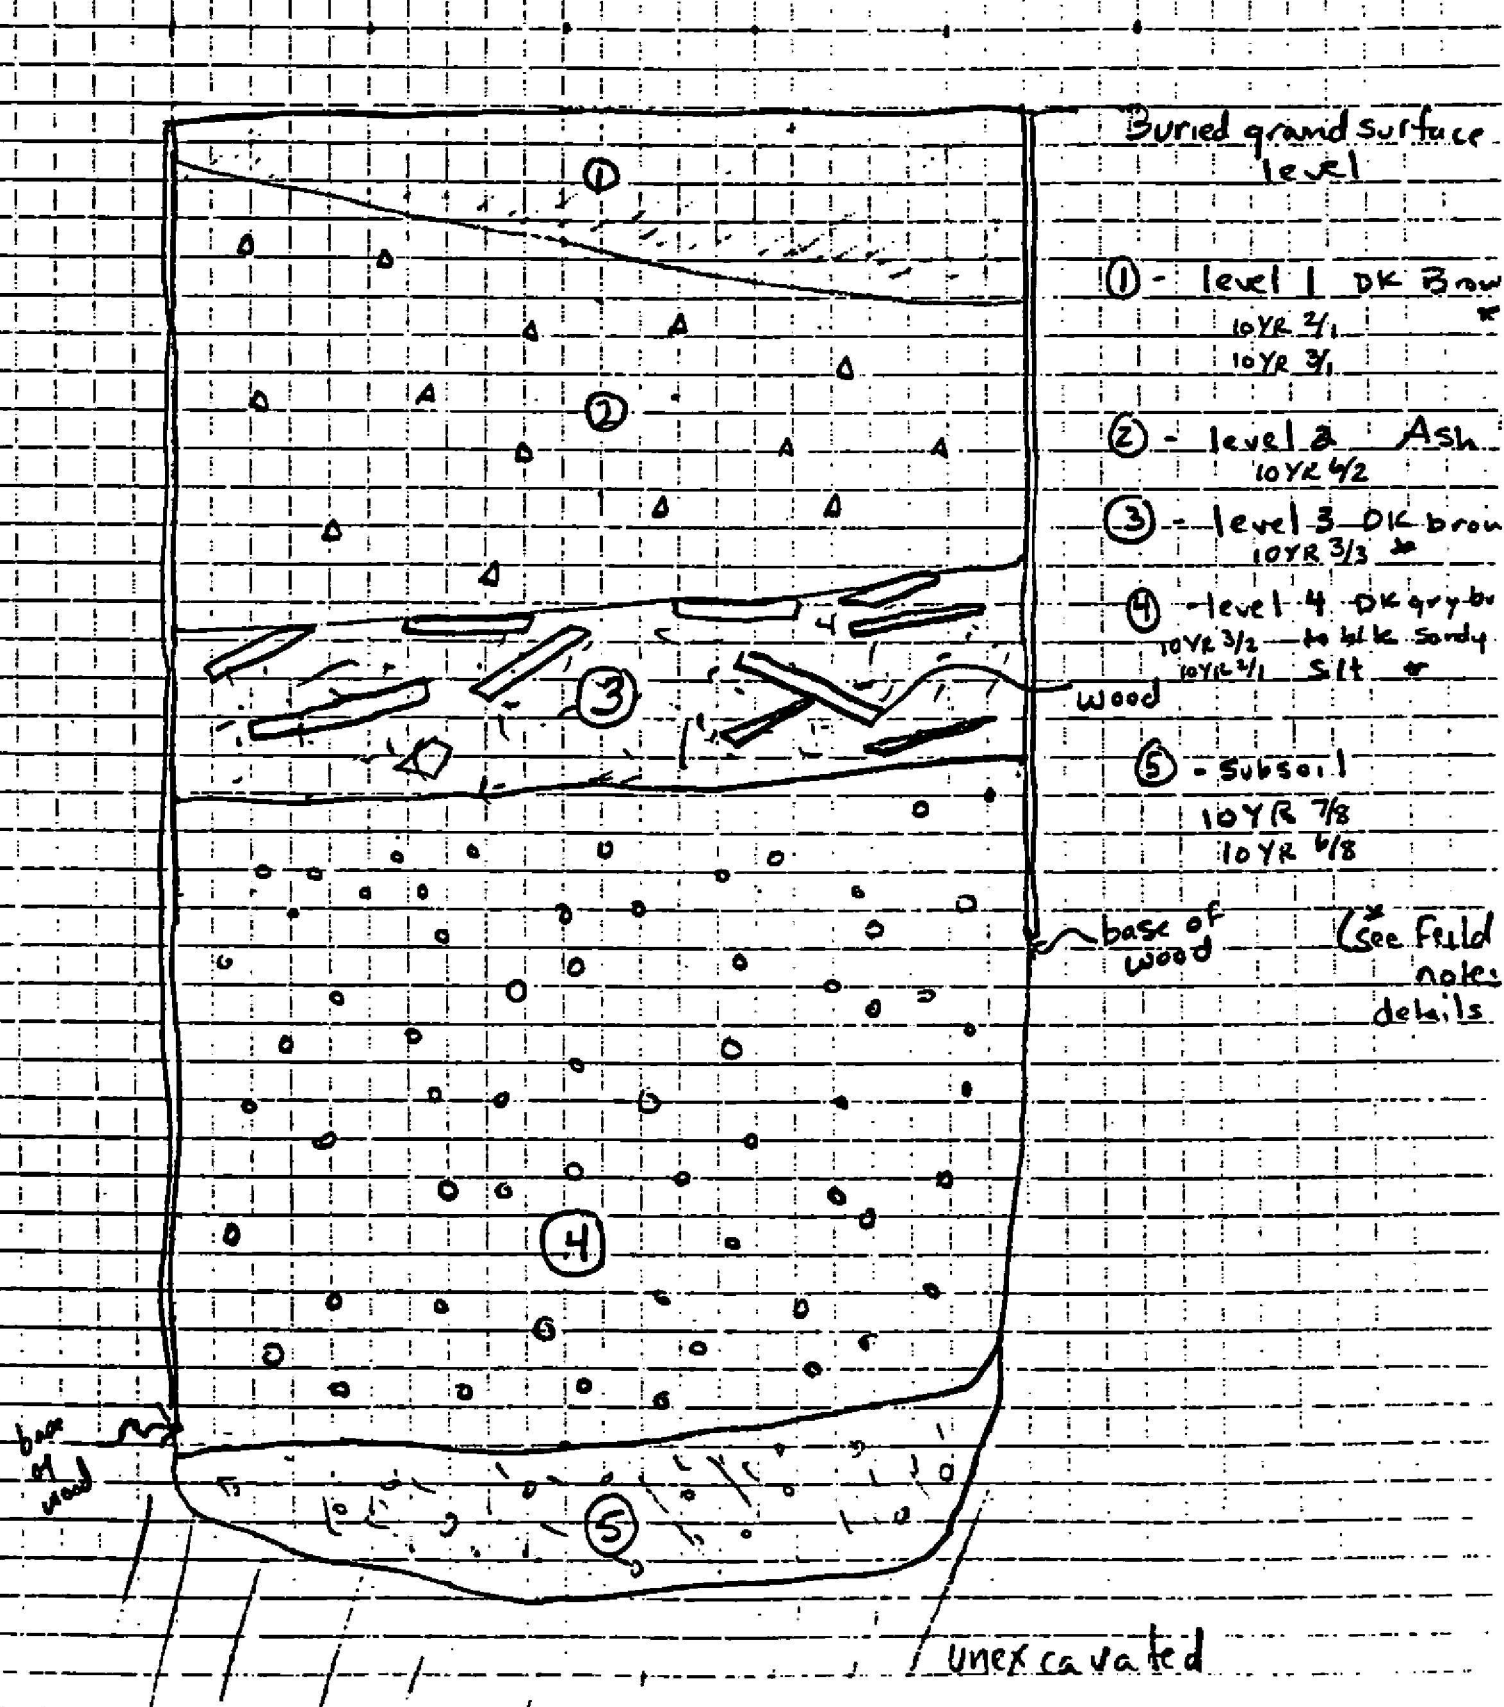 Buried grand surface
level
①
① - level 1 DK Brow
*
10YR 2/1
10YR 3/1
②
② - level 2 Ash
10YR 6/2
③ - level 3 DK brow
10YR 3/3 *
④ - level 4 DK gry br
10YR 3/2 to blk Sandy
10YR 2/1 Silt *
③
wood
⑤ - Subsoil
10YR 7/8
10YR 6/8
base of
wood
(* see Feild
notes
details
④
base
of
wood
⑤
unexcavated